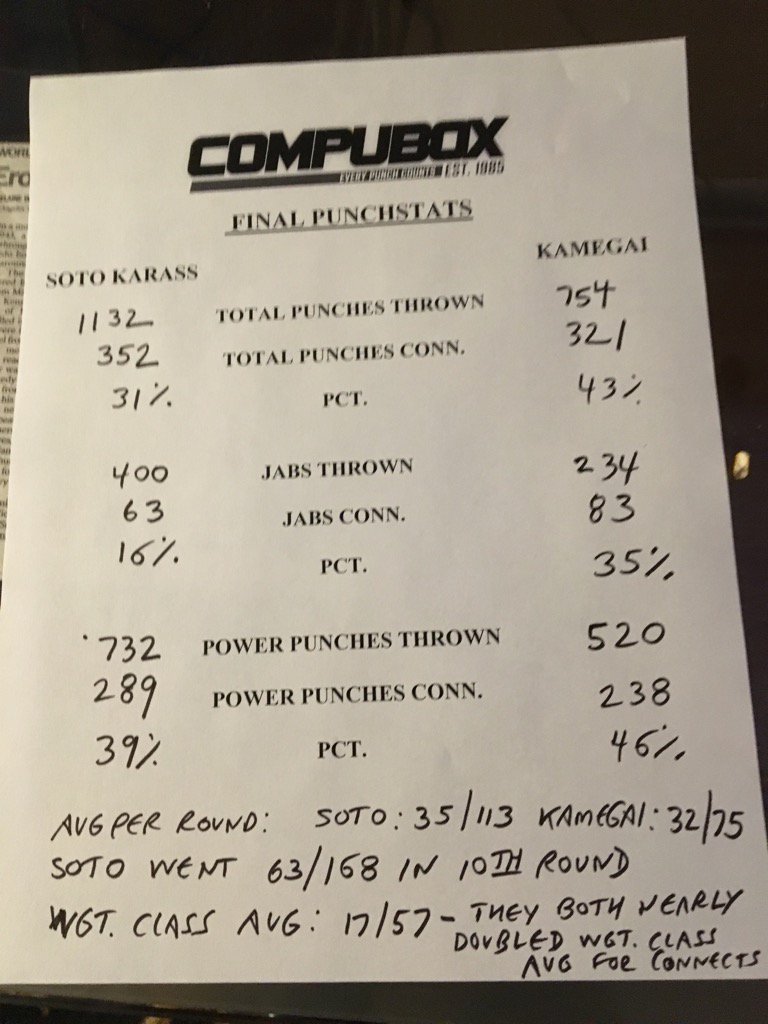 COMPUBOX
EVERY PUNCH COUNTS EST. 1985
FINAL PUNCHSTATS
SOTO KARASS KAMEGAI
1132 TOTAL PUNCHES THROWN 754
352 TOTAL PUNCHES CONN. 321
31% PCT. 43%
400 JABS THROWN 234
63 JABS CONN. 83
16% PCT. 35%
732 POWER PUNCHES THROWN 520
289 POWER PUNCHES CONN. 238
39% PCT. 46%
AVG PER ROUND: SOTO: 35/113 KAMEGAI: 32/75
SOTO WENT 63/168 IN 10TH ROUND
WGT. CLASS AVG: 17/57 - THEY BOTH NEARLY
DOUBLED WGT. CLASS
AVG FOR CONNECTS